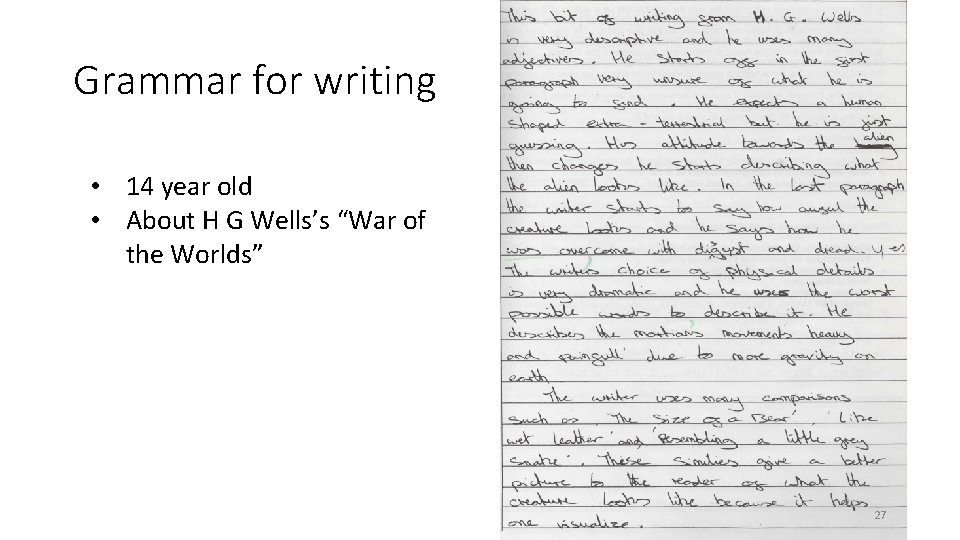 Grammar for writing
• 14 year old
• About H G Wells’s “War of
the Worlds”
This bit of writing from H. G. Wells
is very descriptive and he uses many
adjectives. He starts off in the first
paragraph very unsure of what he is
going to find. He expects a human
shaped extra-terrestrial but he is just
guessing. His attitude towards the alien
then changes he starts describing what
the alien looks like. In the last paragraph
the writer starts to say how awful the
creature looks and he says how he
was overcome with disgust and dread. yes
The writers choice of physical details
is very dramatic and he uses the worst
possible words to describe it. He
describes the martians movements heavy
and painfull due to more gravity on
earth
The writer uses many comparisons
such as, 'The size of a Bear', 'Like
wet leather' and 'Resembling a little grey
snake'. These similies give a better
picture to the reader of what the
creature looks like because it helps
one visualize.
27